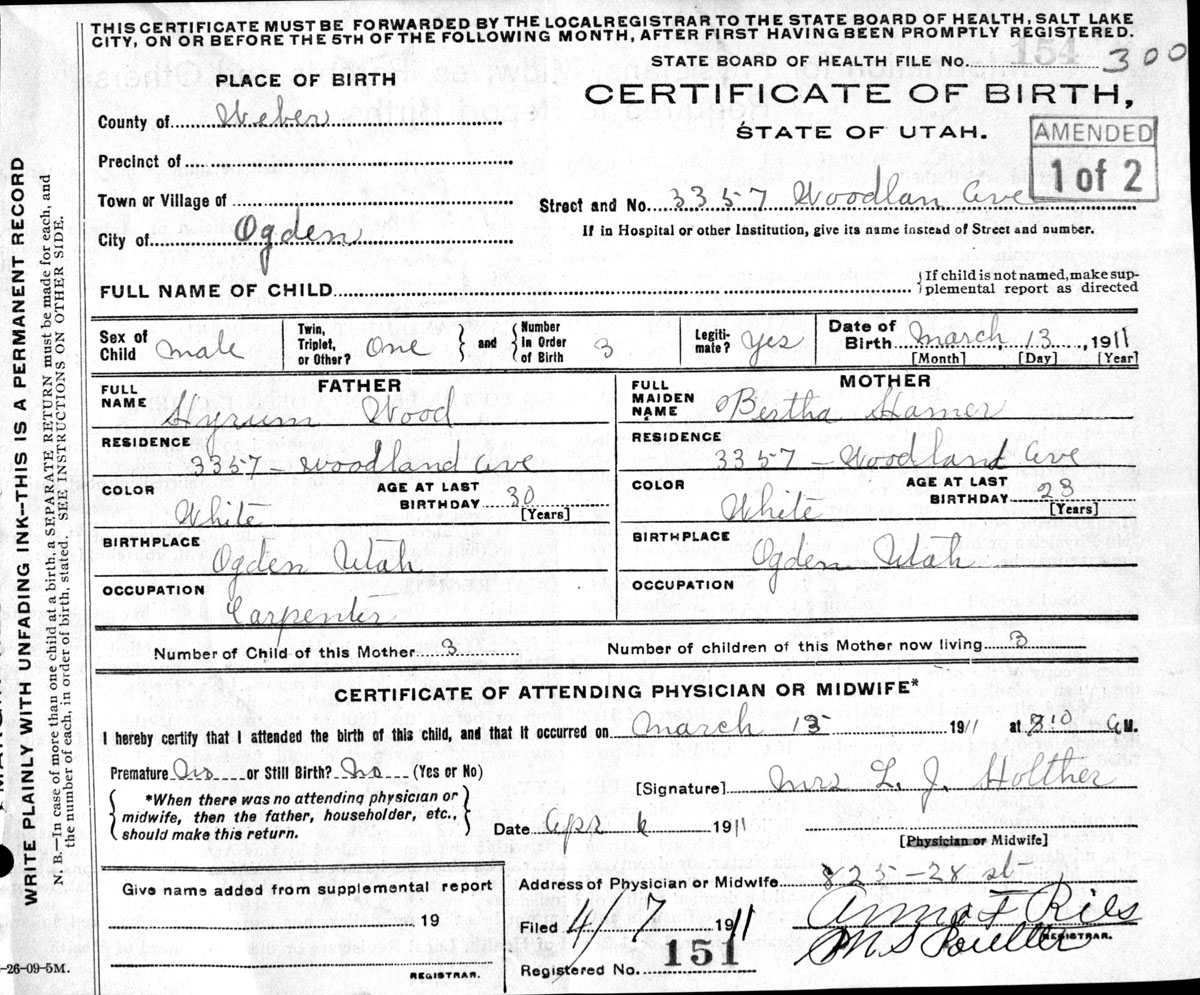 THIS CERTIFICATE MUST BE FORWARDED BY THE LOCAL REGISTRAR TO THE STATE BOARD OF HEALTH, SALT LAKE
CITY, ON OR BEFORE THE 5TH OF THE FOLLOWING MONTH, AFTER FIRST HAVING BEEN PROMPTLY REGISTERED.
STATE BOARD OF HEALTH FILE No. 154 300
PLACE OF BIRTH
CERTIFICATE OF BIRTH,
STATE OF UTAH.
AMENDED
1 of 2
County of Weber
Precinct of
Town or Village of
Street and No. 3357 Woodlan Ave
City of Ogden
If in Hospital or other Institution, give its name instead of Street and number.
FULL NAME OF CHILD
{If child is not named, make sup-
plemental report as directed
Sex of Child male
Twin, Triplet, or Other? One } and { Number In Order of Birth 3
Legiti-mate? Yes
Date of Birth March 13, 1911
[Month] [Day] [Year]
FATHER
MOTHER
FULL NAME Hyrum Wood
FULL MAIDEN NAME Bertha Hamer
RESIDENCE
3357 - Woodland Ave
RESIDENCE
3357 - Woodland Ave
COLOR White
AGE AT LAST BIRTHDAY 30 [Years]
COLOR White
AGE AT LAST BIRTHDAY 28 [Years]
BIRTHPLACE
Ogden Utah
BIRTHPLACE
Ogden Utah
OCCUPATION
Carpenter
OCCUPATION
Number of Child of this Mother 3
Number of children of this Mother now living 3
CERTIFICATE OF ATTENDING PHYSICIAN OR MIDWIFE*
I hereby certify that I attended the birth of this child, and that it occurred on March 13 1911 at 810 a M.
Premature No or Still Birth? No (Yes or No)
[Signature] Mrs L. J. Holther
*When there was no attending physician or
midwife, then the father, householder, etc.,
should make this return.
Date Apr 6 1911
[Physician or Midwife]
Give name added from supplemental report
19
REGISTRAR.
Address of Physician or Midwife 825-28 st
Filed 4/7 1911
Anna F Ries
REGISTRAR.
Registered No. 151
-26-09-5M.
WRITE PLAINLY WITH UNFADING INK—THIS IS A PERMANENT RECORD
N. B.—In case of more than one child at a birth, a SEPARATE RETURN must be made for each, and
the number of each, in order of birth, stated. SEE INSTRUCTIONS ON OTHER SIDE.